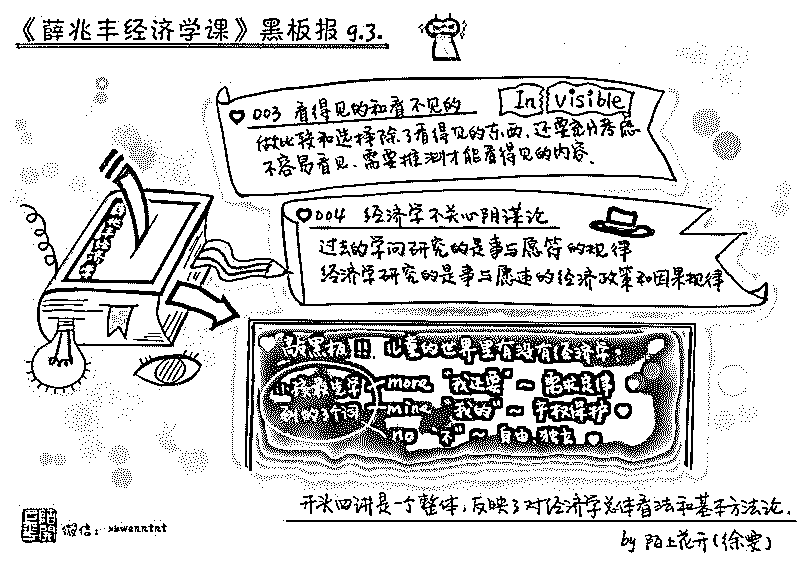 《薛兆丰经济学课》黑板报 9.3.
003 看得见的和看不见的
In visible
做比较和选择除了看得见的东西,还要充分考虑
不容易看见、需要推测才能看得见的内容.
004 经济学不关心阴谋论
过去的学问研究的是事与愿符的规律
经济学研究的是事与愿违的经济政策和因果规律
敲黑板!!. 儿童的世界里有没有经济学?
小孩最先学
到的3个词
more "我还要" ~ 需求定律
mine "我的" ~ 产权保护
no "不" ~ 自由、独立
开头四讲是一个整体,反映了对经济学总体看法和基本方法论.
微信:
by 陌上花开(徐雯)